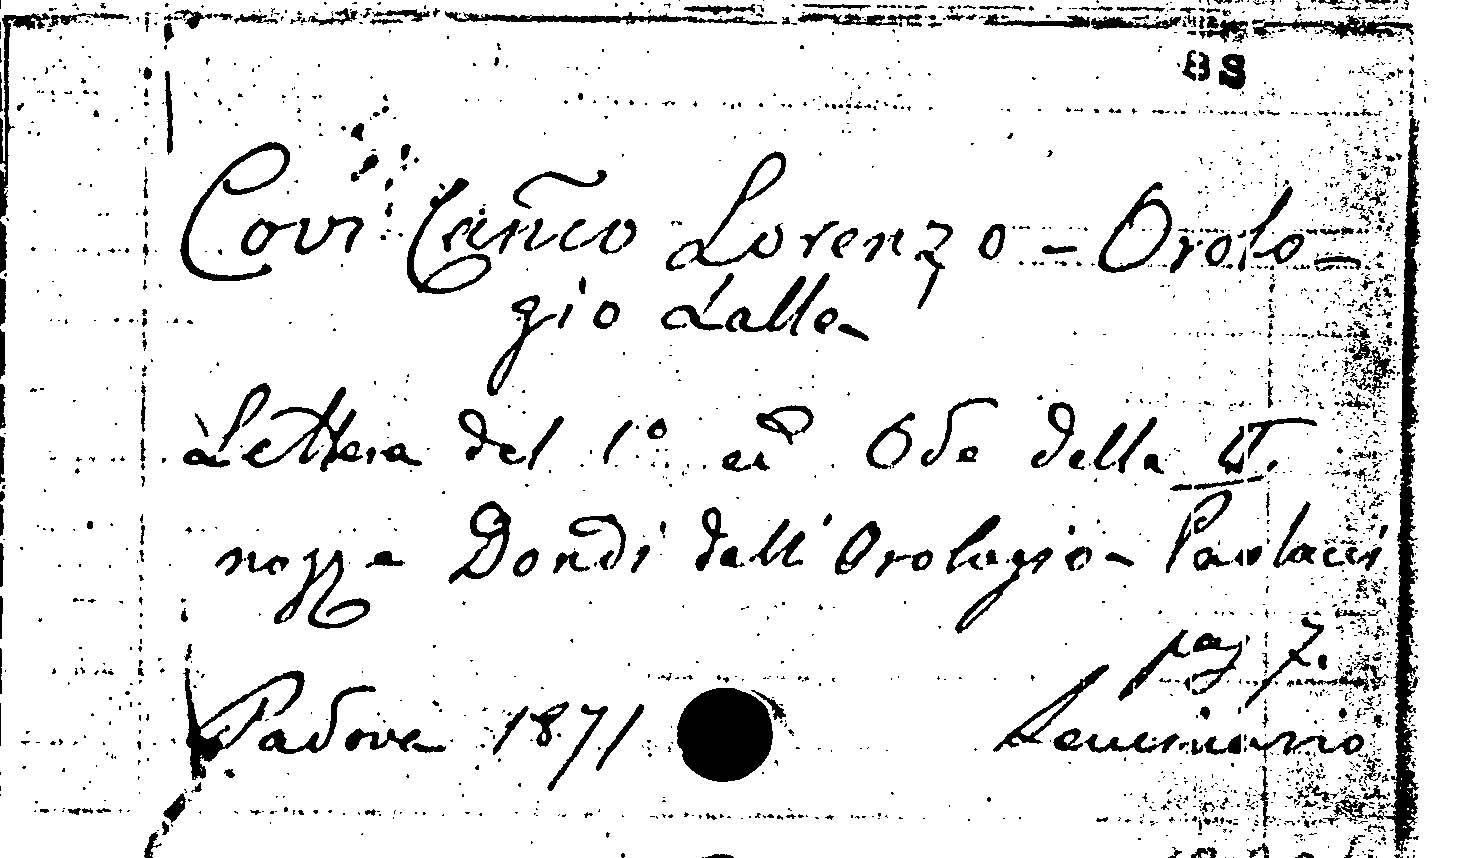 88
Covi Cañco Lorenzo - Orolo-
gio Lalle
Lettera del 1° ed Ode della II.
nozze Dondi dall'Orologio - Paolucci
pag 7.
Padova 1871 Seminario